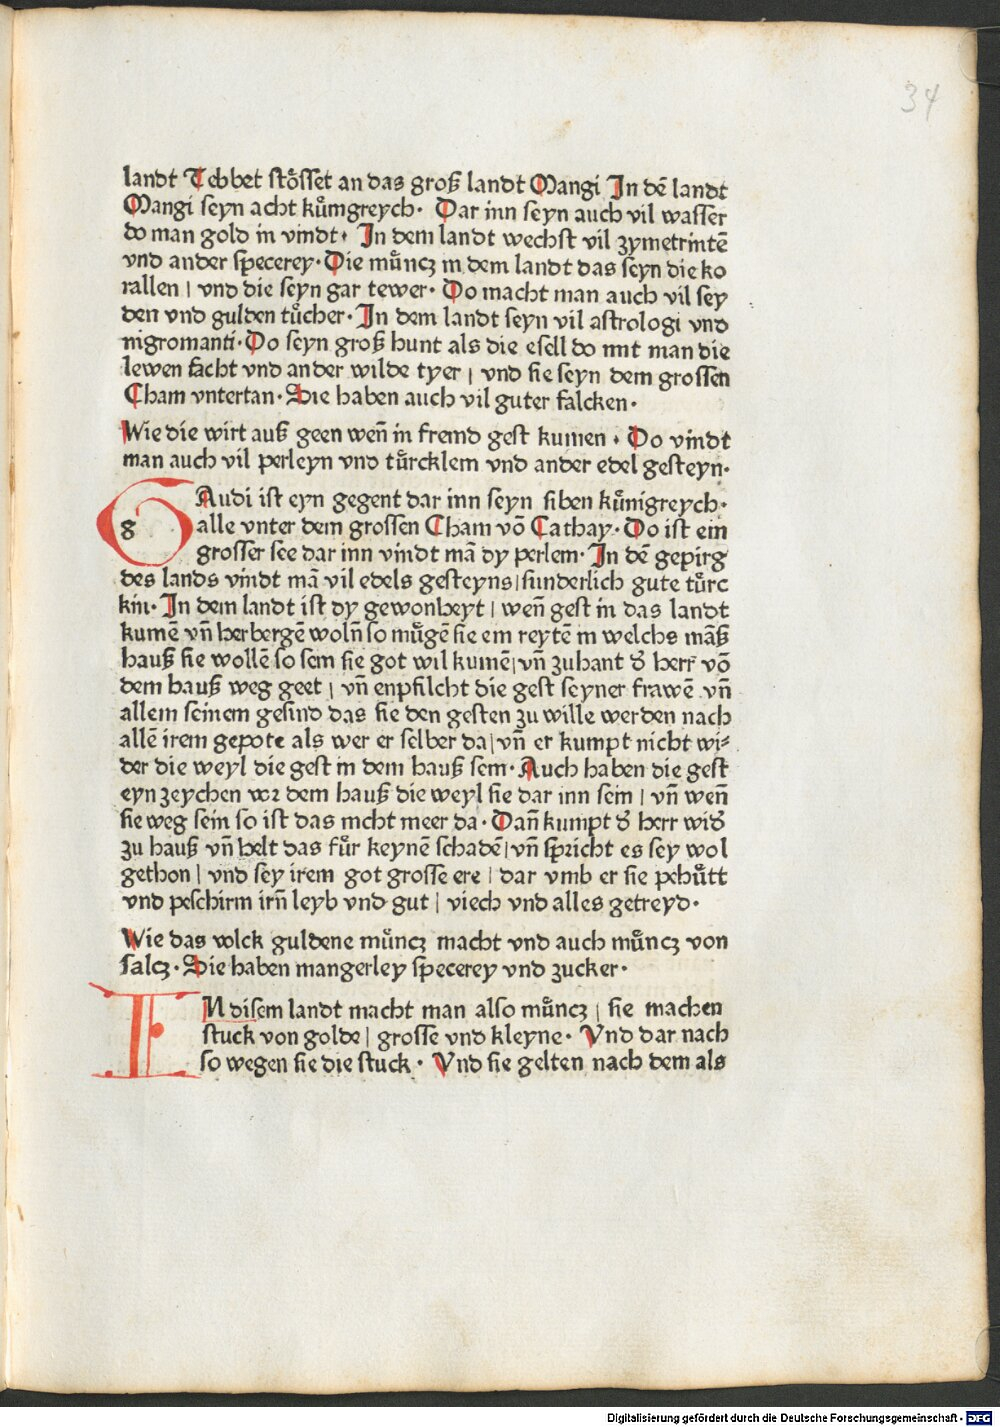 34
landt Tebbet stösset an das groß landt Mangi In dē landt
Mangi seyn acht kůmgreych· Dar inn seyn auch vil wasser
do man gold in vindt· In dem landt wechst vil zymetrintē
vnd ander specerey· Die můncz in dem landt das seyn die ko
rallen | vnd die seyn gar tewer· Do macht man auch vil sey
den vnd gulden tůcher· In dem landt seyn vil astrologi vnd
nigromanti· Do seyn groß hunt als die esell do mit man die
lewen facht vnd ander wilde tyer | vnd sie seyn dem grossen
Cham vntertan· Sie haben auch vil guter falcken·
Wie die wirt auß geen weñ in fremd gest kumen · Do vindt
man auch vil perleyn vnd tůrcklein vnd ander edel gesteyn·
g Audi ist eyn gegent dar inn seyn siben kůnigreych·
alle vnter dem grossen Cham vō Cathay· Do ist ein
grosser see dar inn vindt mā dy perlem· In dē gepirg
des lands vindt mā vil edels gesteyns | sunderlich gute tůrc
kin· In dem landt ist dy gewonheyt | weñ gest in das landt
kumē vñ herbergē wolñ so můgē sie ein reytē in welchs māß
hauß sie wollē so sein sie got wil kumē | vñ zuhant d̄ herr vō
dem hauß weg geet | vñ enpfilcht die gest seyner frawē vñ
allem seinem gesind das sie den gesten zu wille werden nach
allē irem gepote als wer er selber da | vñ er kumpt nicht wi⸗
der die weyl die gest in dem hauß sein· Auch haben die gest
eyn zeychen vor dem hauß die weyl sie dar inn sein | vñ weñ
sie weg sein so ist das nicht meer da· Dañ kumpt d̄ herr wid̄
zu hauß vñ helt das fůr keynē schadē | vñ spricht es sey wol
gethon | vnd sey irem got grosse ere | dar vmb er sie pehůtt
vnd peschirm irñ leyb vnd gut | viech vnd alles getreyd·
Wie das volck guldene můncz macht vnd auch můncz von
salcz· Sie haben mangerley specerey vnd zucker·
IN disem landt macht man also můncz | sie machen
stuck von golde | grosse vnd kleyne· Vnd dar nach
so wegen sie die stuck· Vnd sie gelten nach dem als
Digitalisierung gefördert durch die Deutsche Forschungsgemeinschaft - DFG